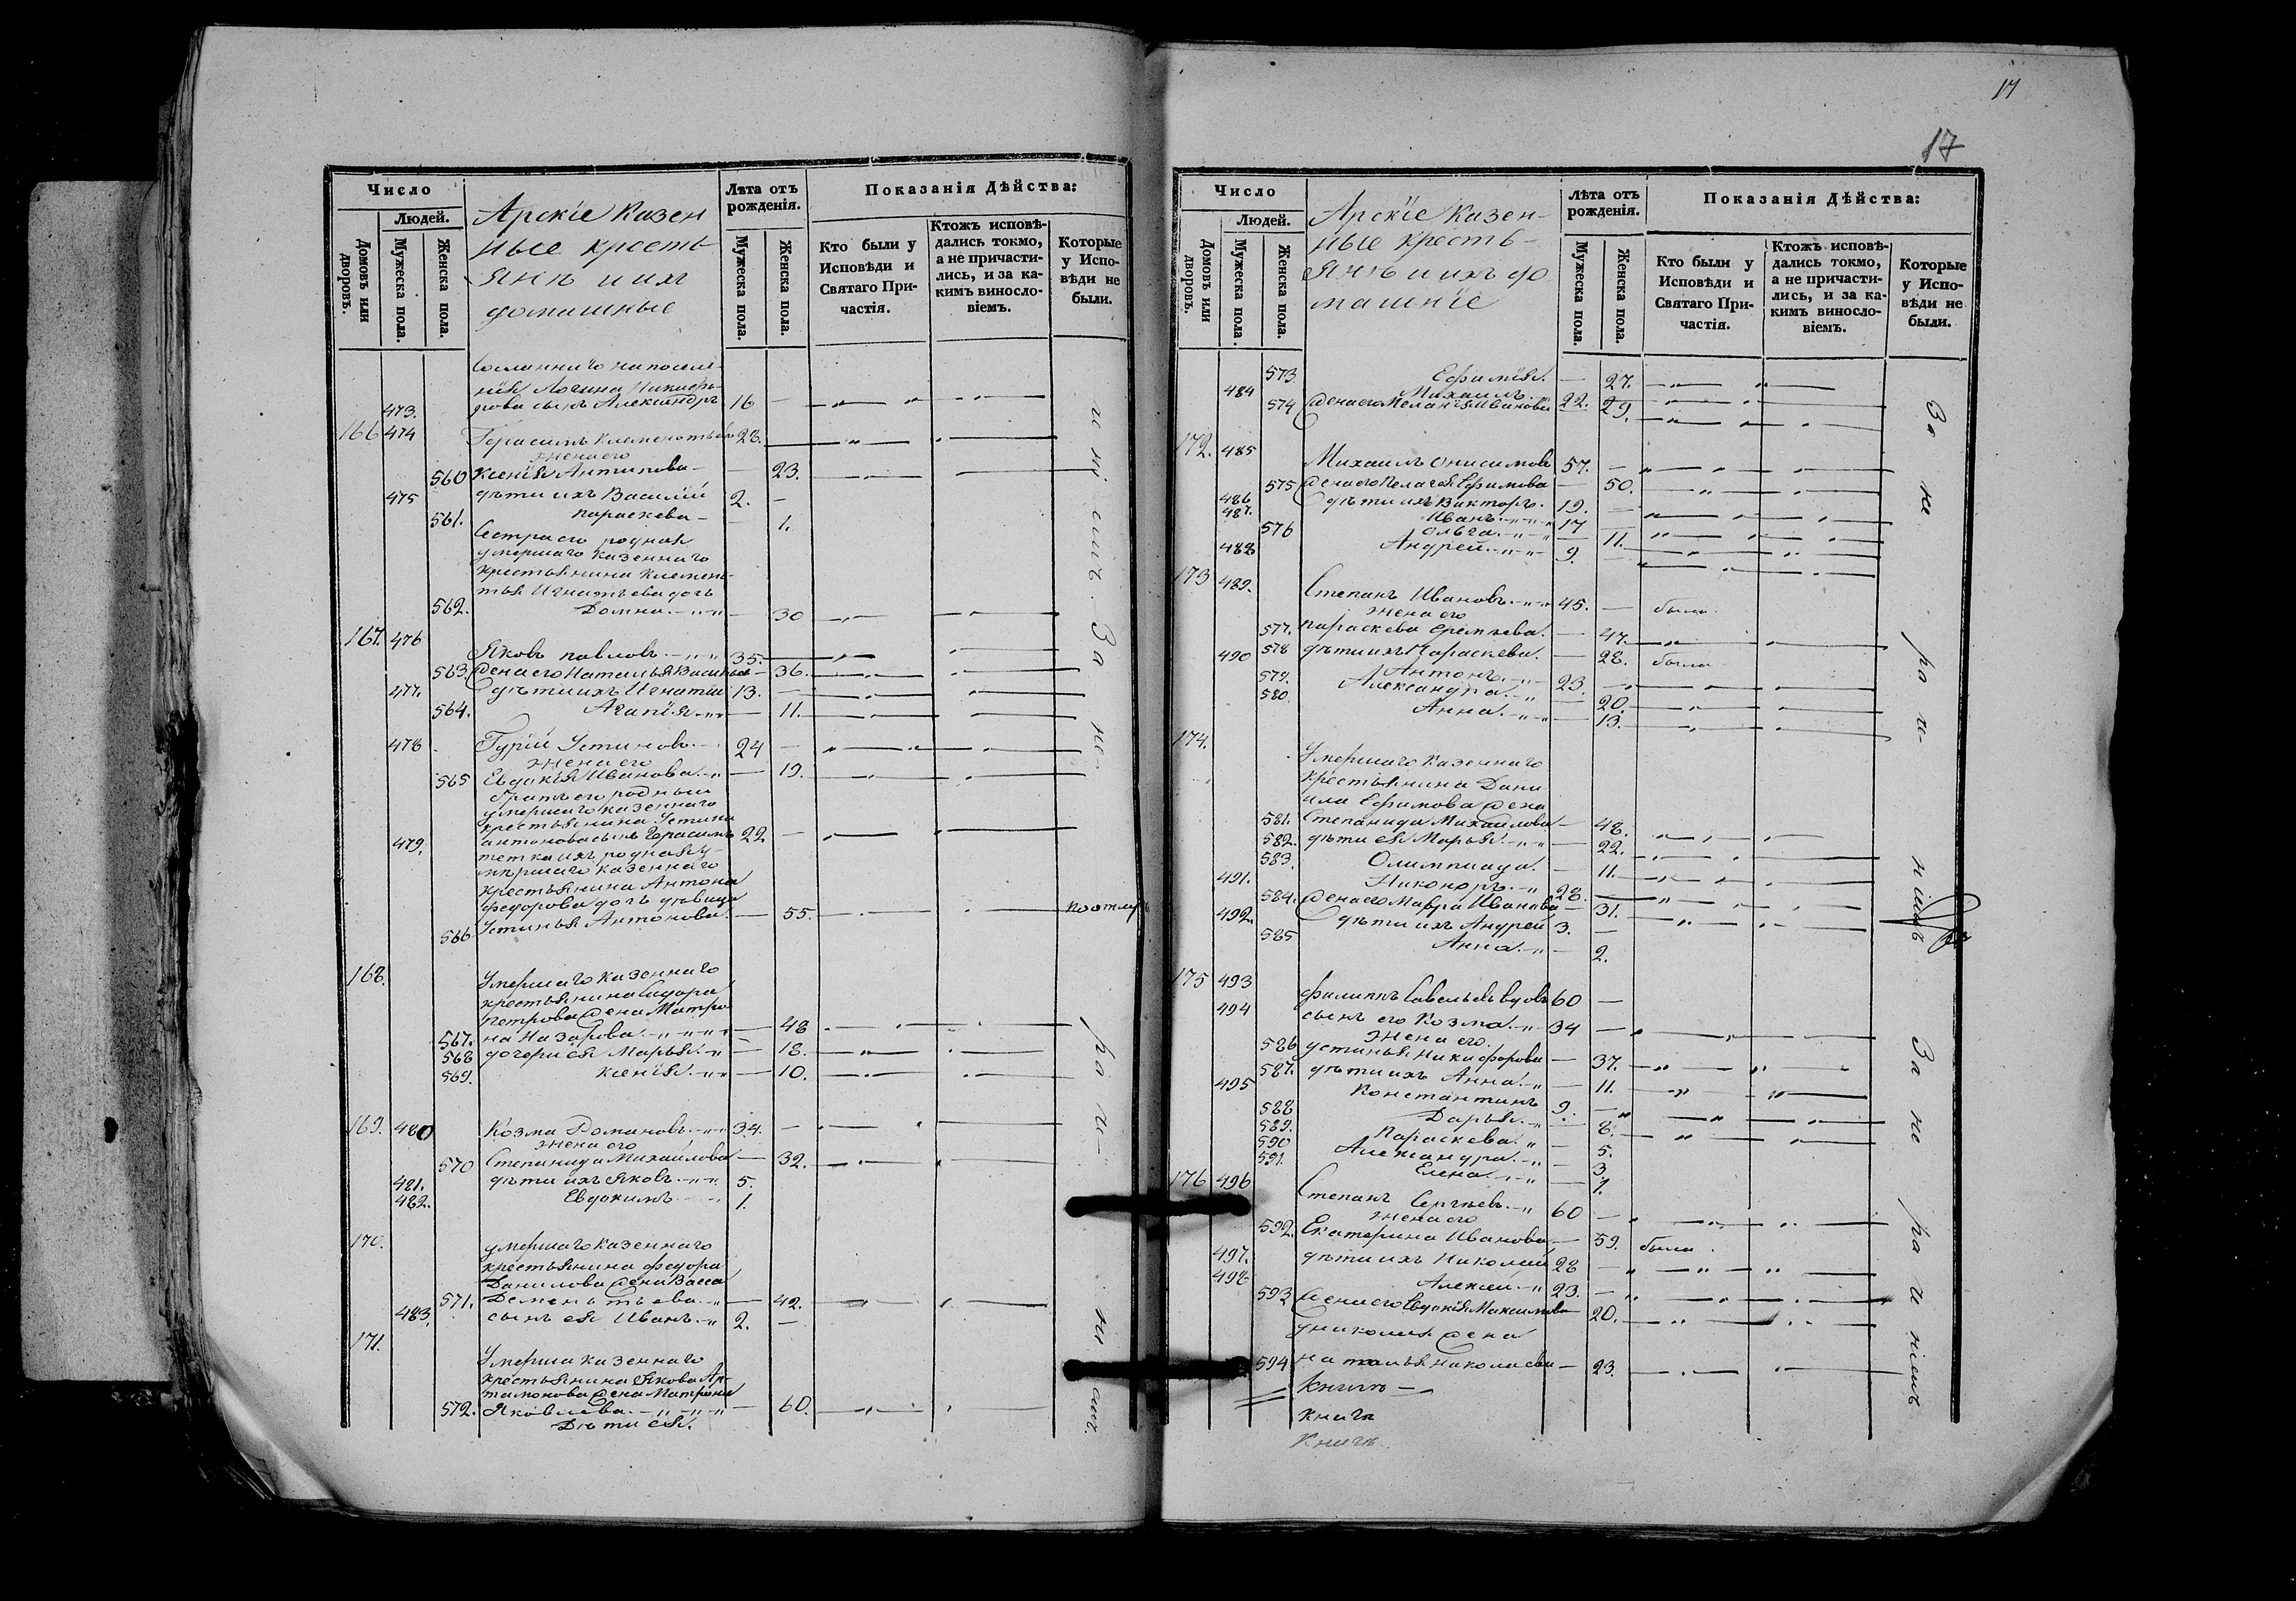 Число
Людей.
Домовъ или дворовъ.
Мужеска пола.
Женска пола.
Арскіе Казен
ные кресть
янѣ и ихъ
домашные
Лѣта отъ рожденія.
Мужеска пола.
Женска пола.
Показанія Дѣйства:
Кто были у Исповѣди и Святаго При-частія.
Ктожъ исповѣ-дались токмо, а не причасти-лись, и за ка-кимъ винословіемъ.
Которые у Испо-вѣди не были.
Сосланнаго на поселе-
нія Логина Никифо-
473. рова сынъ Александръ 16 —
166 474 Герасимъ Клементьевъ 28.
жена его
560 Ксенія Антипова — 23.
475 дѣти ихъ Василій 2. —
561. Параскева — 1.
Сестра его родная
умершаго казеннаго
крестьянина Клемен-
тья Игнатьева дочь
562. Домна — 30
167. 476 Яковъ Павловъ 35.
563. Жена его Наталья — 36.
477. дѣти ихъ Игнатій 13. —
564. Агапія — 11.
478 Гурій Устиновъ 24 —
жена его
565 Евдокія Иванова — 19.
братъ его родный
умершаго казеннаго
крестьянина Устина
479. Антонова сынъ Герасимъ 22 —
тетка ихъ родная у-
мершаго казеннаго
крестьянина Антона
Федорова дочь дѣвица
566 Устинья Антонова — 55.
168. Умершаго казеннаго
крестьянина Сидора
Петрова жена Матре
567. на Назарова — 48
568 дочери ея Марья — 18.
569. Ксенія — 10.
169. 480 Козма Романовъ 34. —
жена его
570 Степанида Михайлова — 32.
481. дѣти ихъ Яковъ 5.
482. Евдокимъ 1.
170. умершаго казеннаго
крестьянина Федора
Данилова жена Васса
571. Дементьева — 42.
483. сынъ ея Иванъ 2. —
171. Умерша казеннаго
крестьянина Якова Ар-
тамонова жена Матрена
572. Яковлева — 60.
Дѣти ея.
17
17
Число
Людей.
Домовъ или дворовъ.
Мужеска пола.
Женска пола.
Арскіе Казен-
ные кресть-
янѣ и ихъ до
машніе
Лѣта отъ рожденія.
Мужеска пола.
Женска пола.
Показанія Дѣйства:
Кто были у Исповѣди и Святаго При-частія.
Ктожъ исповѣ-дались токмо, а не причасти-лись, и за ка-кимъ винословіемъ.
Которые у Испо-вѣди не были.
573 Ефимія. — 27.
484 Михаилъ 22.
574 Жена его Меланія Иванова — 29.
172. 485 Михаилъ Онисимовъ 57. —
575 Жена его Пелагея Ефимова — 50.
486 дѣти ихъ Викторъ. 19. —
487. Иванъ 17 —
576 Ольга — 11.
488 Андрей 9. —
173 489. Степанъ Ивановъ 45. — былъ
жена его
577. Параскева Еремеева. — 47.
578 дѣти ихъ Параскева. — 28. была
490 Антонъ 23. —
579. Александра — 20.
580. Анна — 13.
174. Умершаго казеннаго
крестьянина Дани
ила Ефимова жена
581. Степанида Михайлова — 48.
582. дѣти ея Марья — 22.
583. Олимпиада. — 11.
491. Никоноръ 28. —
584. Жена его Мавра Иванова — 31.
492. дѣти ихъ Андрей 3. —
585 Анна — 2.
175 493 Филиппъ Савельевъ вдовъ 60 —
494 сынъ его Козма 34 —
жена его.
586 Устинья Никифорова — 37.
587. дѣти ихъ Анна — 11.
495 Константинъ 9. —
588 Дарья — 8.
589. Параскева — 5.
590 Александра — 3.
591. Елена — 1.
176 496 Степанъ Сергѣевъ 60 —
жена его
592. Екатерина Иванова — 59. была
497. дѣти ихъ Николай 28 —
498 Алексѣй 23. —
593 Жена его Евдокія Максимова — 20.
у Николая жена
594 Наталья Николаева — 23.
книгъ
книгъ
книгъ
За не ра ч- ніемъ
За не ра ч ніемъ